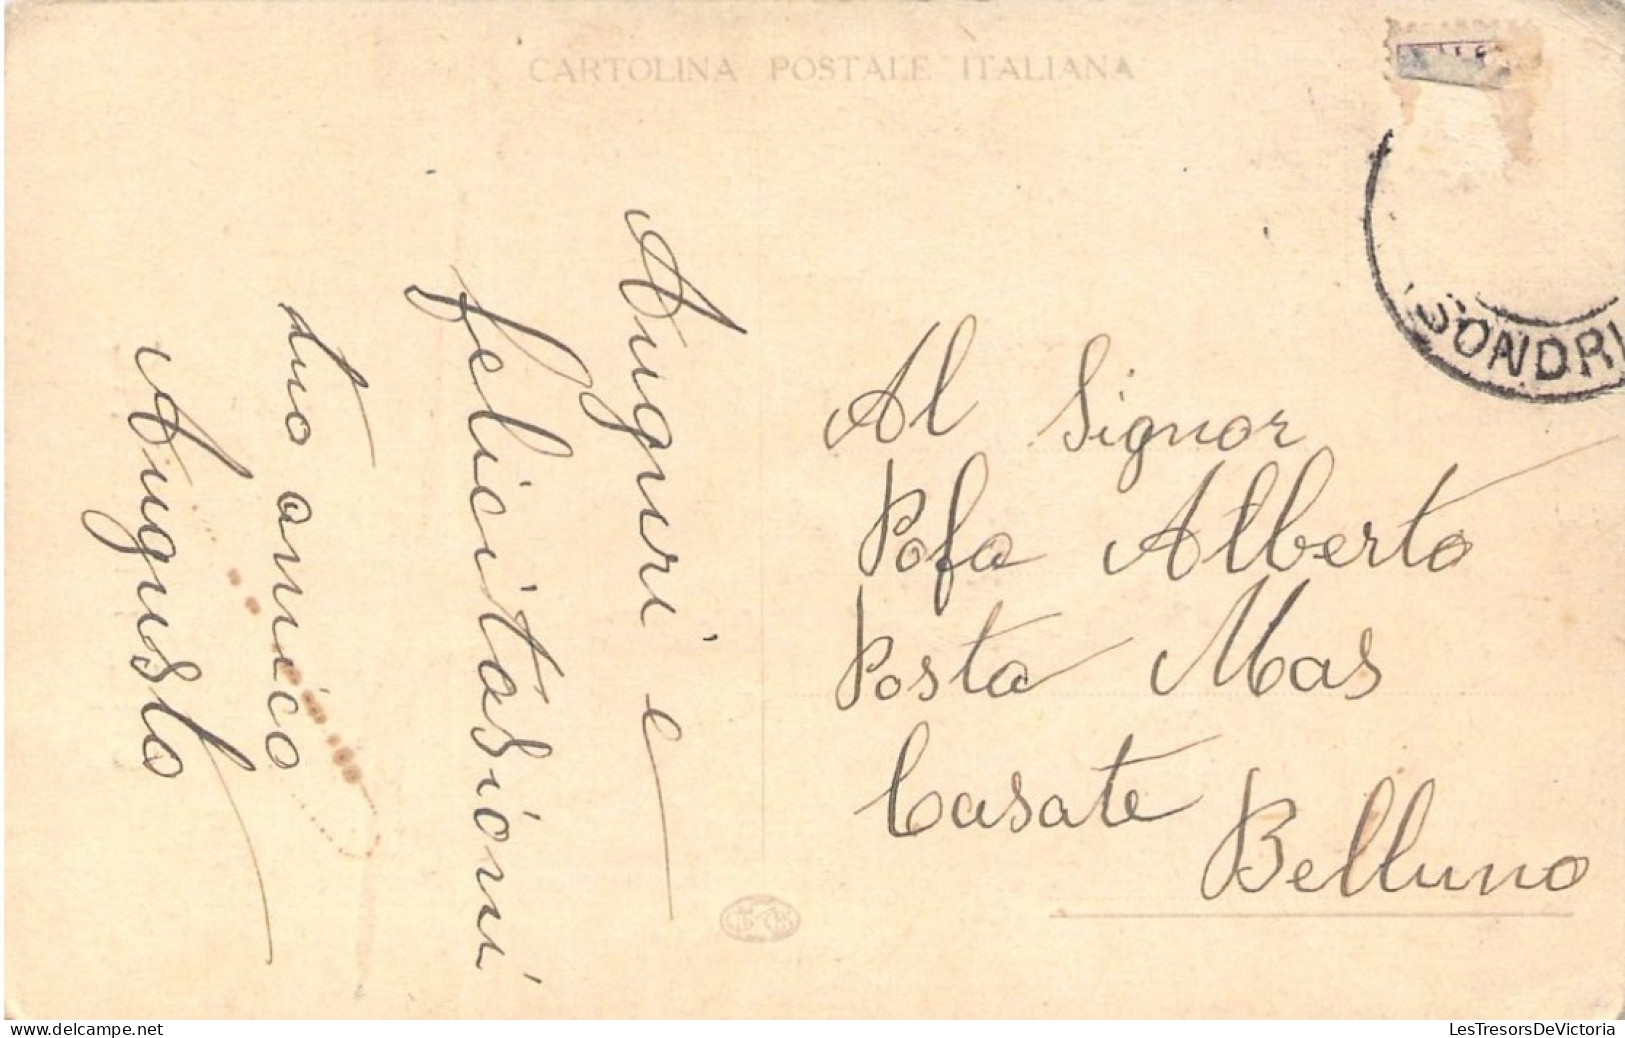 CARTOLINA POSTALE ITALIANA
Auguri e
felicitasioni
tuo amico
Augusto
SONDRI
Al Signor
Pofa Alberto
Posta Mas
Casate
Belluno
LesTresorsDeVictoria
https://www.delcampe.net